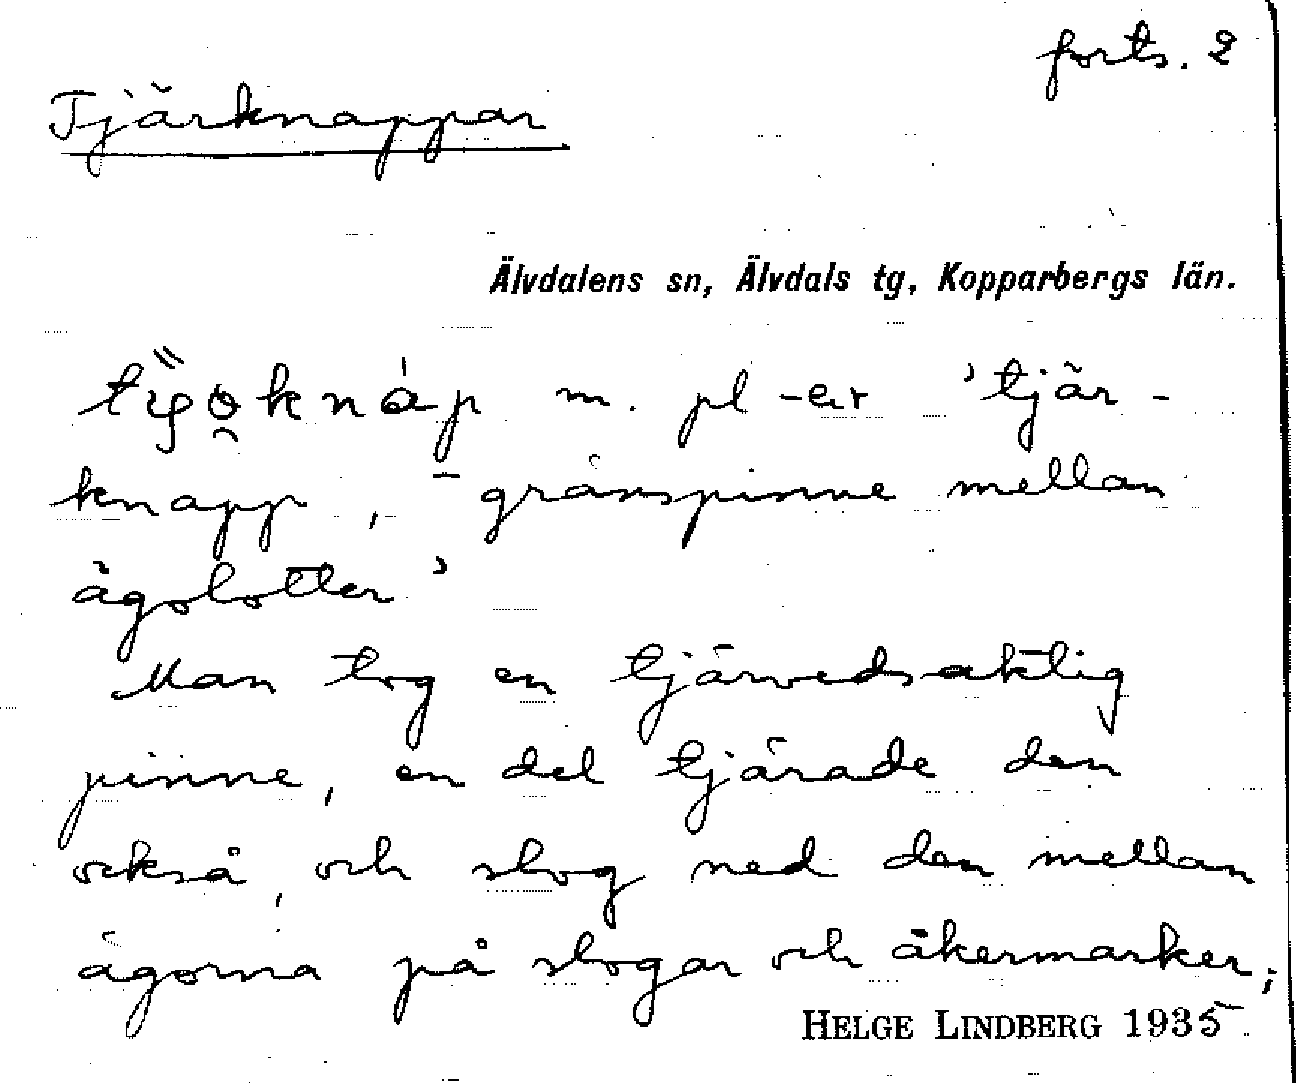 forts. 2
Tjärknappar
Älvdalens sn, Älvdals tg, Kopparbergs län.
m. pl -er 'tjär-
knapp, - gränspinne mellan
ägolotter'
Man tog en tjärvedsaktig
pinne, en del tjärade den
också, och slog ned den mellan
ägorna på slogar och åkermarker;
HELGE LINDBERG 1935.